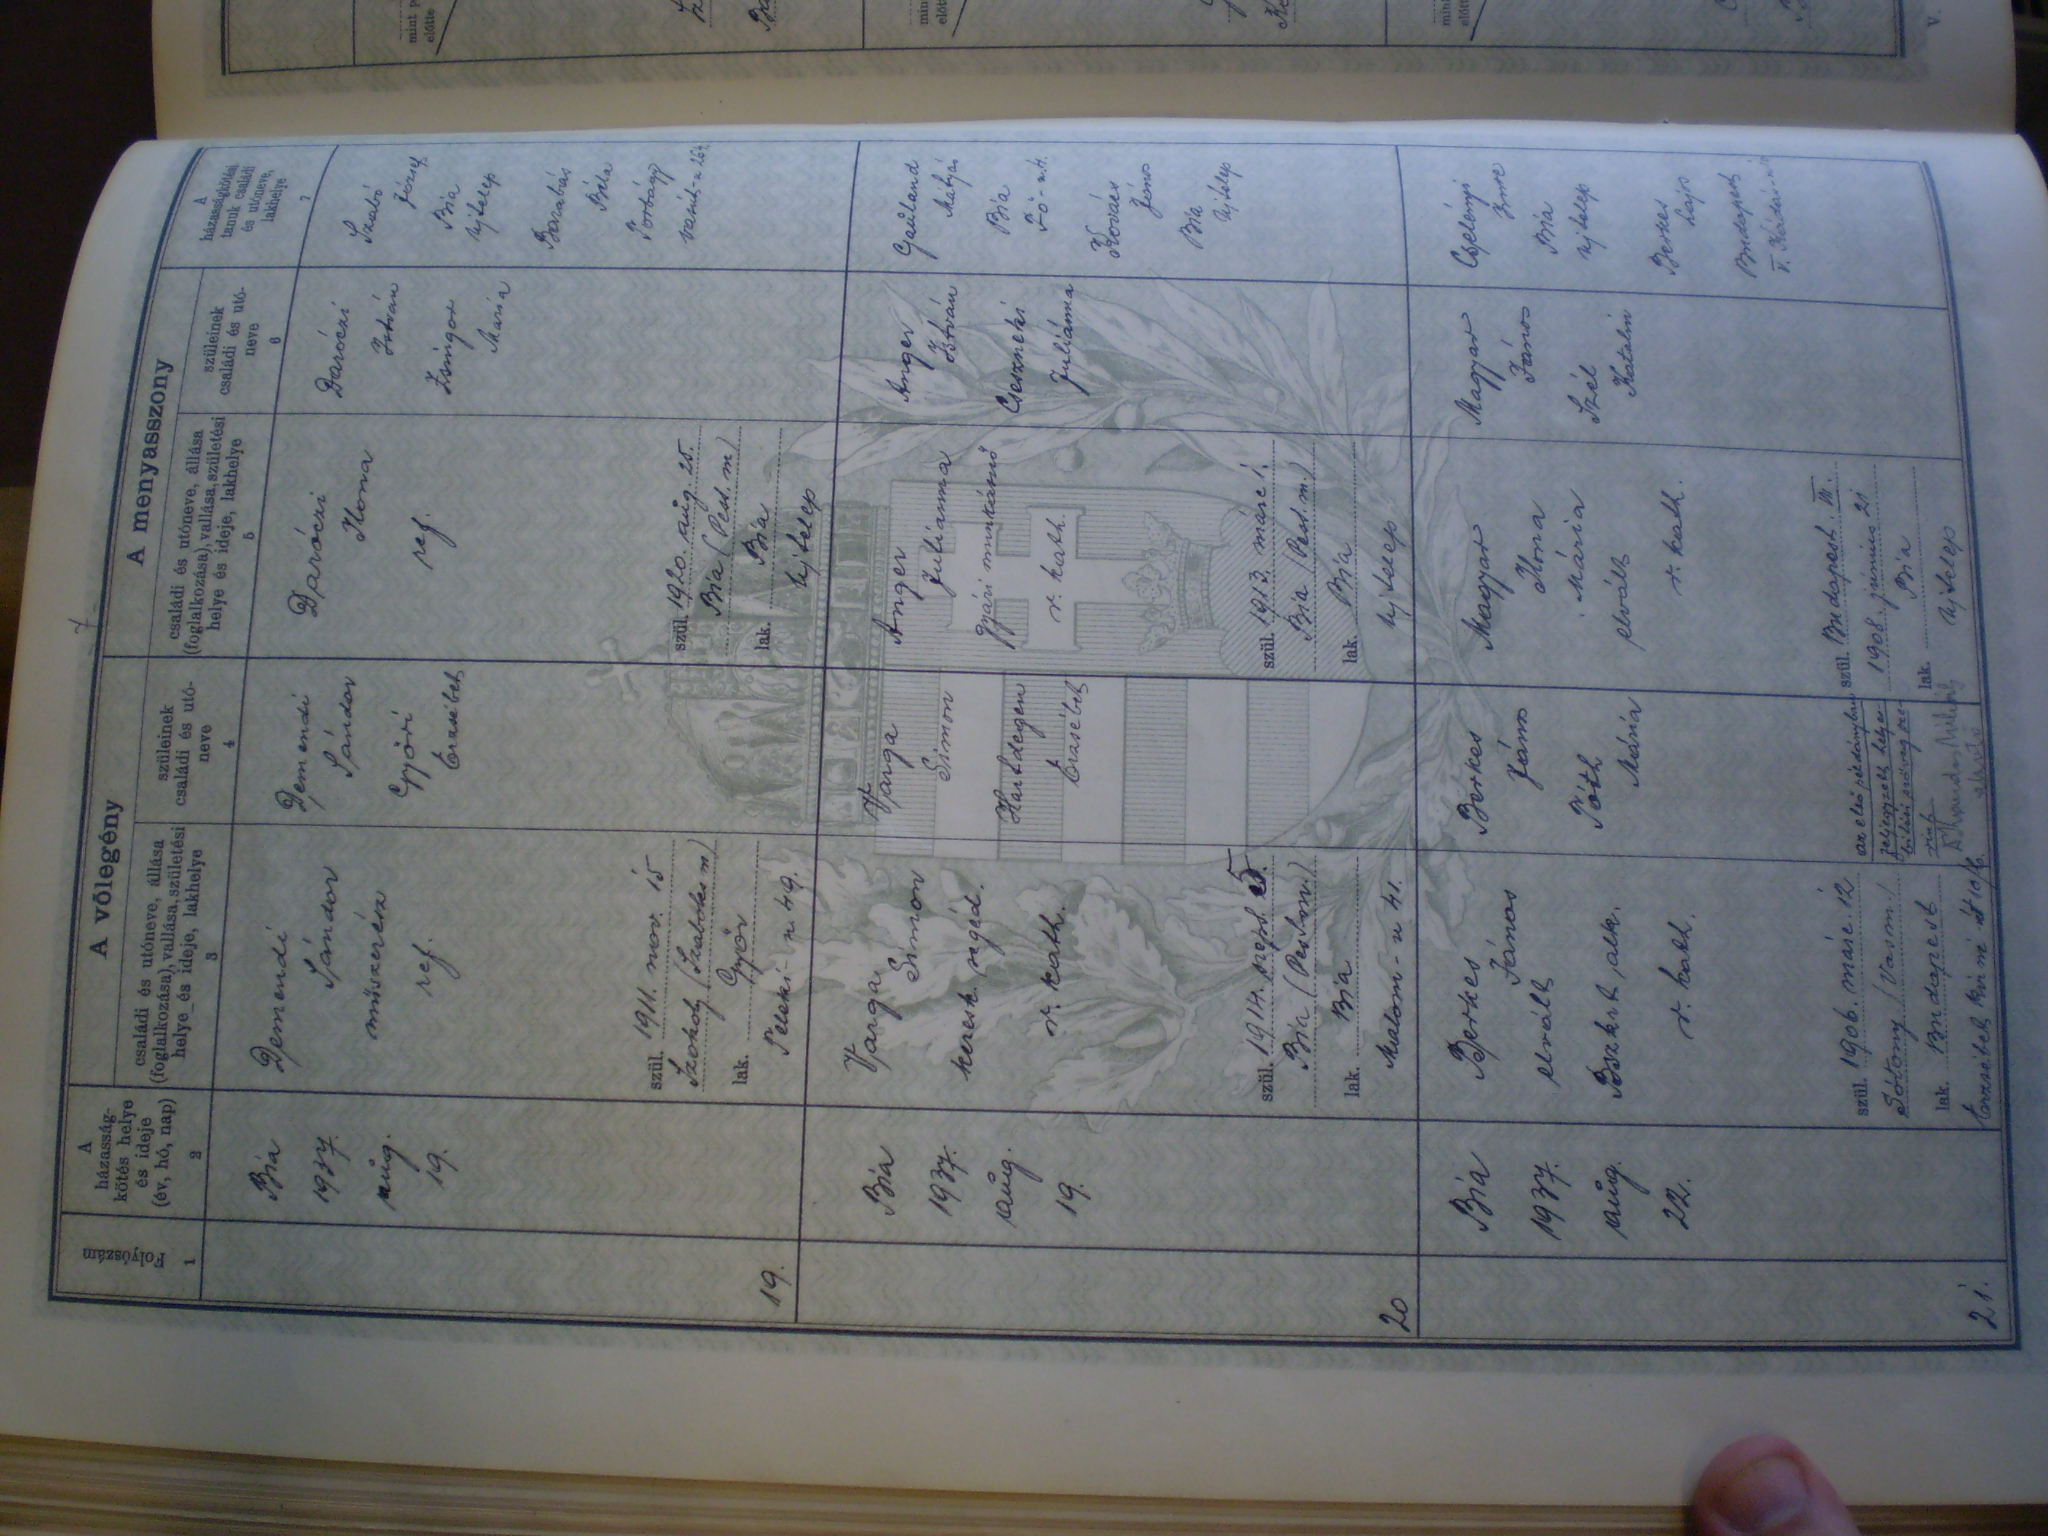 7
A völegény
A menyasszony
Folyószám
A
házasság-
kötés helye
és ideje
(év, hó, nap)
családi és utóneve, állása
(foglalkozása), vallása, születési
helye és ideje, lakhelye
szüleinek
családi és utó-
neve
családi és utóneve, állása
(foglalkozása), vallása, születési
helye és ideje, lakhelye
szüleinek
családi és utó-
neve
A
házasságkötési
tanuk családi
és utóneve,
lakhelye
1
2
3
4
5
6
7
19.
Bia
1937.
aug.
19.
Demendi
Sándor
műszerész
ref.
szül. 1911. nov. 15
Szakoly (Szabolcs m)
lak. Győr
Teleki-u 49.
Demendi
Sándor
Győri
Erzsébet
Daróczi
Ilona
ref.
szül. 1920. aug. 25.
Bia (Pest m)
lak. Bia
Ujtelep
Daróczi
István
Zsingor
Mária
Szabó
József
Bia
Ujtelep
Barabás
Béla
Torbágy
20
Bia
1937.
aug.
19.
Varga
Simon
keresk. segéd.
r. kath.
szül. 1914. szept. 5.
Bia (Pest m.)
lak. Bia
Malom-u 41.
Varga
Simon
Hartdegen
Erzsébet
Anger
Julianna
gyári munkásnő
r. kath.
szül. 1913. márc 1.
Bia (Pest m.)
lak. Bia
Ujtelep
Anger
István
Cseszneki
Juliánna
Mátyás
Bia
Fő-u.
Kovács
János
Bia
Ujtelep
21.
Bia
1937.
aug.
22.
Berkes
János
elvált
Bszkrt, alk.
r. kath.
szül. 1906. márc. 12
(Vasm.)
lak. Budapest
Erzsébet
Berkes
János
Tóth
Mária
az első példányban
Magyar
Ilona
Mária
elvált
r. kath.
szül. Budapest III.
1908. junius 21
lak. Bia
Ujtelep
Magyar
János
Szél
Katalin
Cselényi
Imre
Bia
Ujtelep
Berkes
Lajos
Budapest
V.